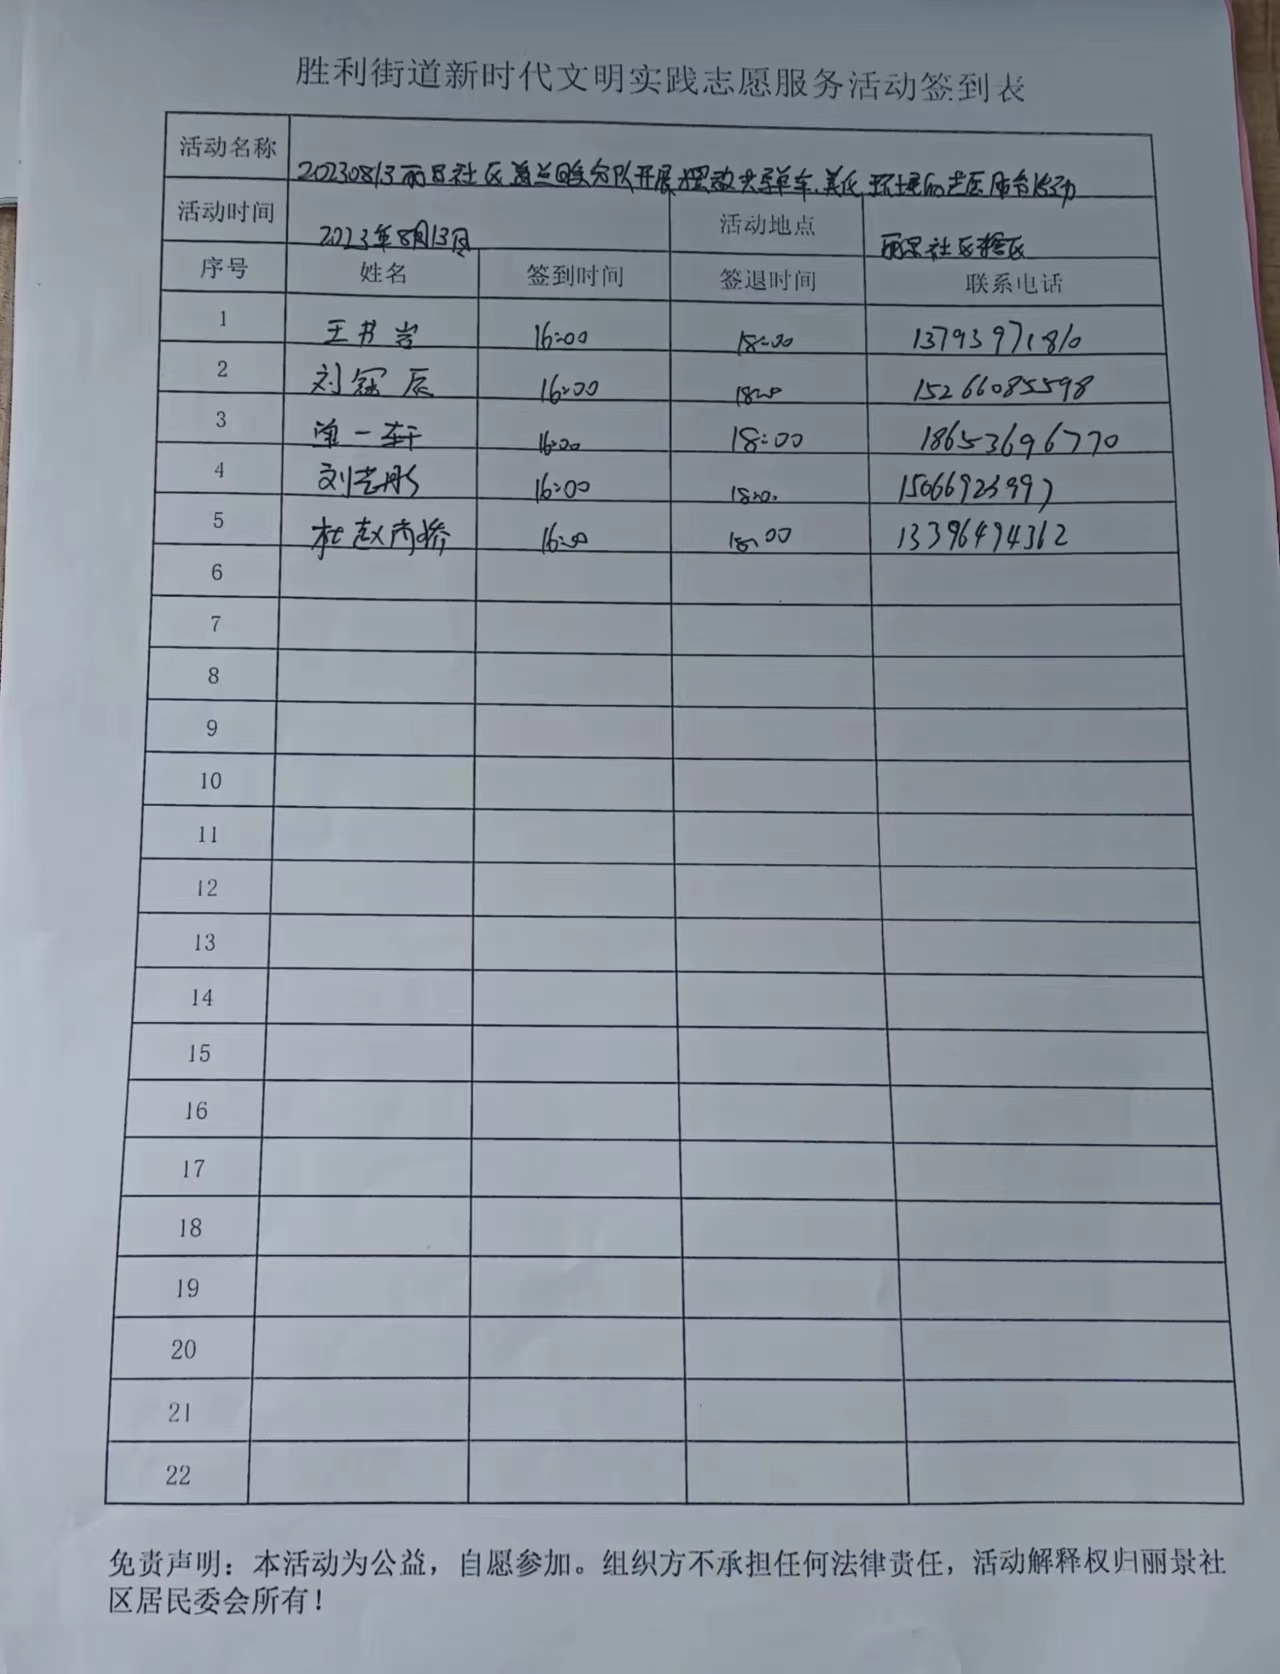 胜利街道新时代文明实践志愿服务活动签到表
活动名称 20230813丽景社区 分队开展摆放共享单车、美化环境的志愿服务活动
活动时间 2023年8月13日 活动地点 丽景社区辖区
序号 姓名 签到时间 签退时间 联系电话
1 王书岩 16:00 18:00 13793971810
2 刘冠辰 16:00 18:00 15266085598
3 单一轩 16:00 18:00 18653696770
4 刘艺彤 16:00 18:00
5 杜赵 16:00 18:00 13396494362
6
7
8
9
10
11
12
13
14
15
16
17
18
19
20
21
22
免责声明：本活动为公益，自愿参加。组织方不承担任何法律责任，活动解释权归丽景社
区居民委会所有！